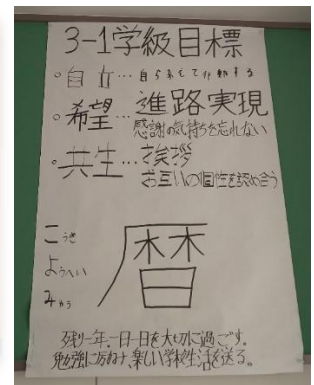 3-1学級目標
・自立…自ら考えて行動する
・希望…進路実現
感謝の気持ちを忘れない
・共生…挨拶
お互いの個性を認め合う
こうき
ようへい
みゅう
暦
残り一年、一日一日を大切に過ごす。
勉強に方ねナ、楽しい学校生活を送る。